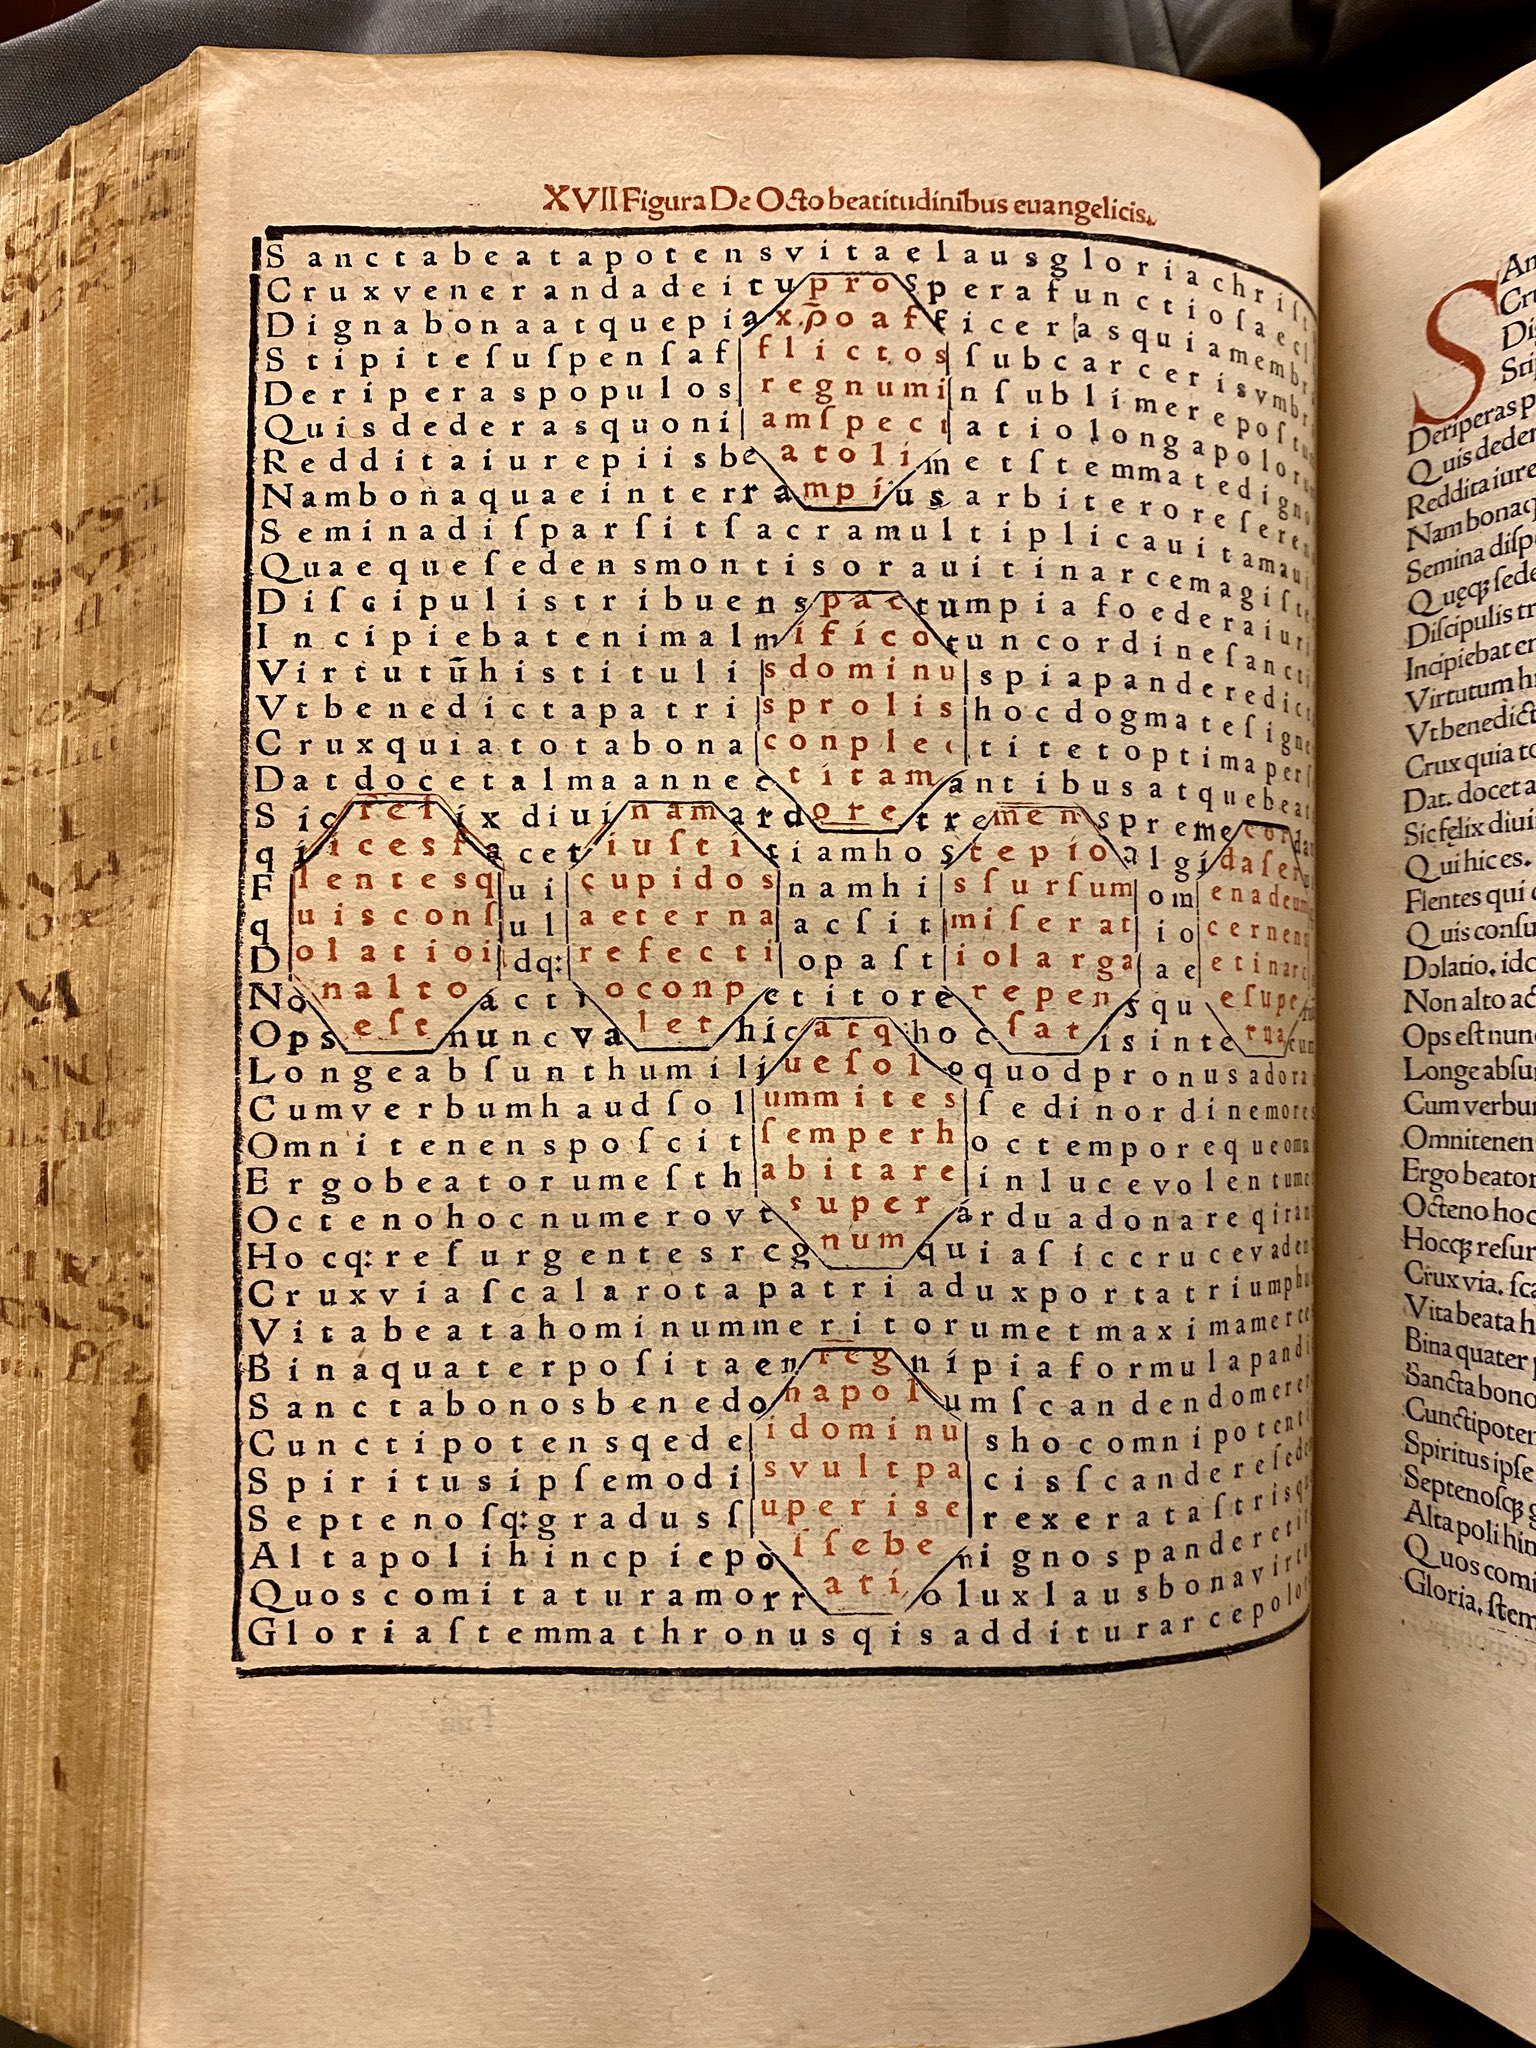 XVII Figura De Octo beatitudinibus euangelicis.
Sanctabeatapotensvitaelausgloriachriſt
Cruxvenerandadeituproſperafunctioſaecl
Dignabonaatquepiaxp̄oafficerasquiamembr
Stipiteſuſpenſafflictosſubcarcerisvmbr
Deriperaspopulosregnuminſublimerepoſtu
Quisdederasquoniamſpectatiolongapolor
Redditaiurepiisbeatolimetſtemmatedign
Nambonaquaeinterrampiusarbiteroreſeren
Seminadiſparſitſacramultiplicauitamaui
Quaequeſedensmontisorauitinarcemagiſte
Diſcipulistribuenspactumpiafoederaiuri
Incipiebatenimalmificotuncordineſancti
Virtutūhistitulisdominuspiapanderedict
Vtbenedictapatrisprolishocdogmateſigne
Cruxquiatotabonaconplectitetoptimaperſ
Datdocetalmaannectitamantibusatquebeat
Sicfelixdiuinamardoretremenspremecordan
qiicesfacetiuſtitiamhostepioalgidaſeru
Flentesquicupidosnamhisſurſumomenadeum
quisconſulaeternaacſitmiſeratiocernens
Dolatioidq:refectiopaſtiolargaaeetinarc
Nonaltoactioconpetitorerepensqueſupe
Opseſtnuncvalethicatqhocſatisinteruacun
Longeabſunthumiliueſoloquodpronusadora
Cumverbumhaudſolummitesſedinordinemores
Omnitenenspoſcitſemperhoctemporequeomn
Ergobeatorumeſthabitareinlucevolentume
Octenohocnumerovtsuperarduadonareqiran
Hocq:reſurgentesregnumquiaſiccrucevaden
Cruxviaſcalarotapatriaduxportatriumphu
Vitabeatahominummeritorumetmaximamerce
Binaquaterpoſitaenregnipiaformulapandi
Sanctabonosbenedonapolumſcandendomerer
Cunctipotensqedeidominushocomnipotenti
Spiritusipſemodisvultpaciſſcandereſede
Septenoſq:gradusſuperiserexerataſtrisqu
Altapolihincpiepoſſebenignospanderetit
Quoscomitaturamorratioluxlausbonavirtu
Gloriaſtemmathronusqisadditurarcepolor
An
Cru
Dig
Stip
Deriperas p
Quis deder
Reddita iure
Nam bonaq
Semina diſp
Quęq ſede
Diſcipulis tr
Incipiebat en
Virtutum hi
Vt benedict
Crux quia to
Dat. docet a
Sic felix diui
Qui hic es.
Flentes qui
Quis conſu
Dolatio. ido
Non alto ac
Ops eſt nunc
Longe abſu
Cum verbu
Omnitenen
Ergo beator
Octeno hoc
Hocq reſur
Crux via. ſca
Vita beata h
Bina quater
Sancta bono
Cunctipoten
Spiritus ipſe
Septenoſq g
Alta poli hin
Quos comi
Gloria. ſtem